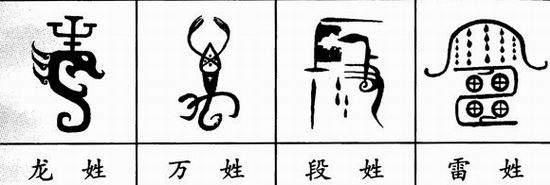 龙 姓 万 姓 段 姓 雷 姓